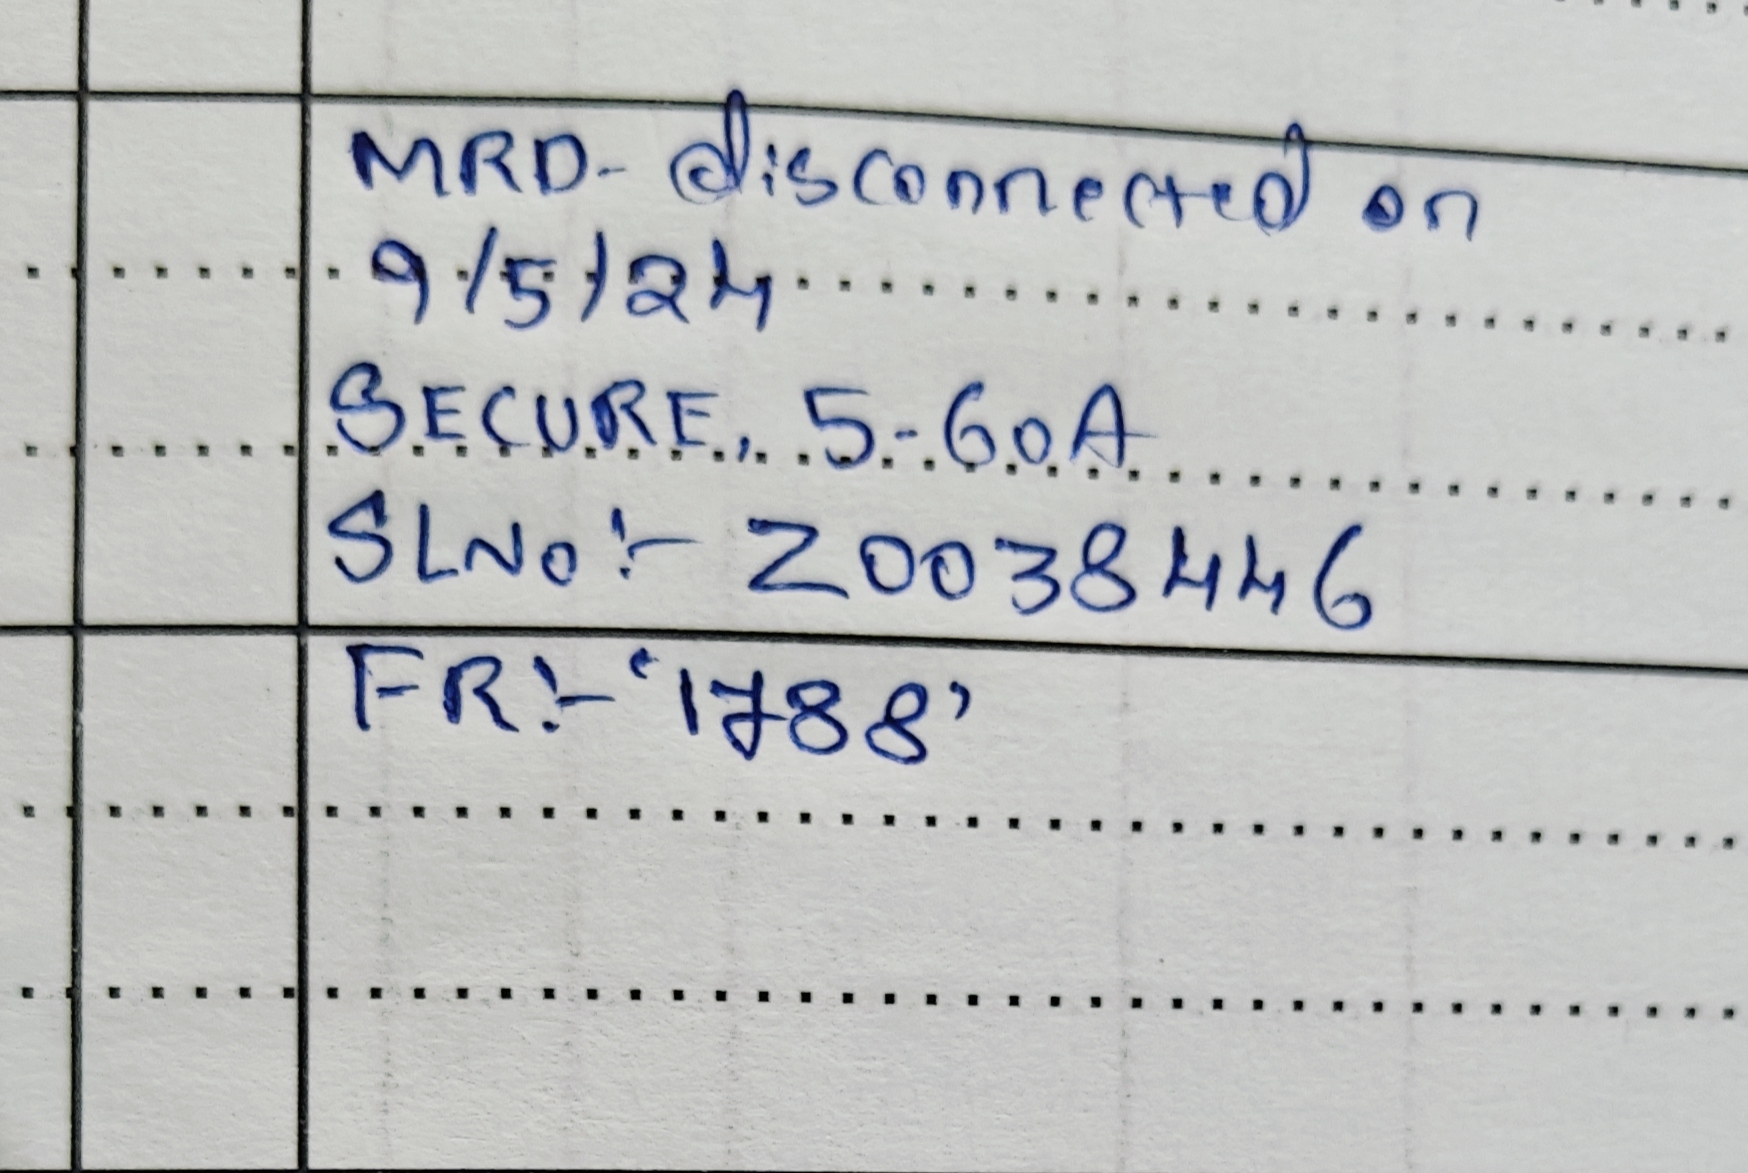 MRD- disconnected on
9/5/24
SECURE, 5-60A
SLNo:- Z0038446
FR:- '1788'